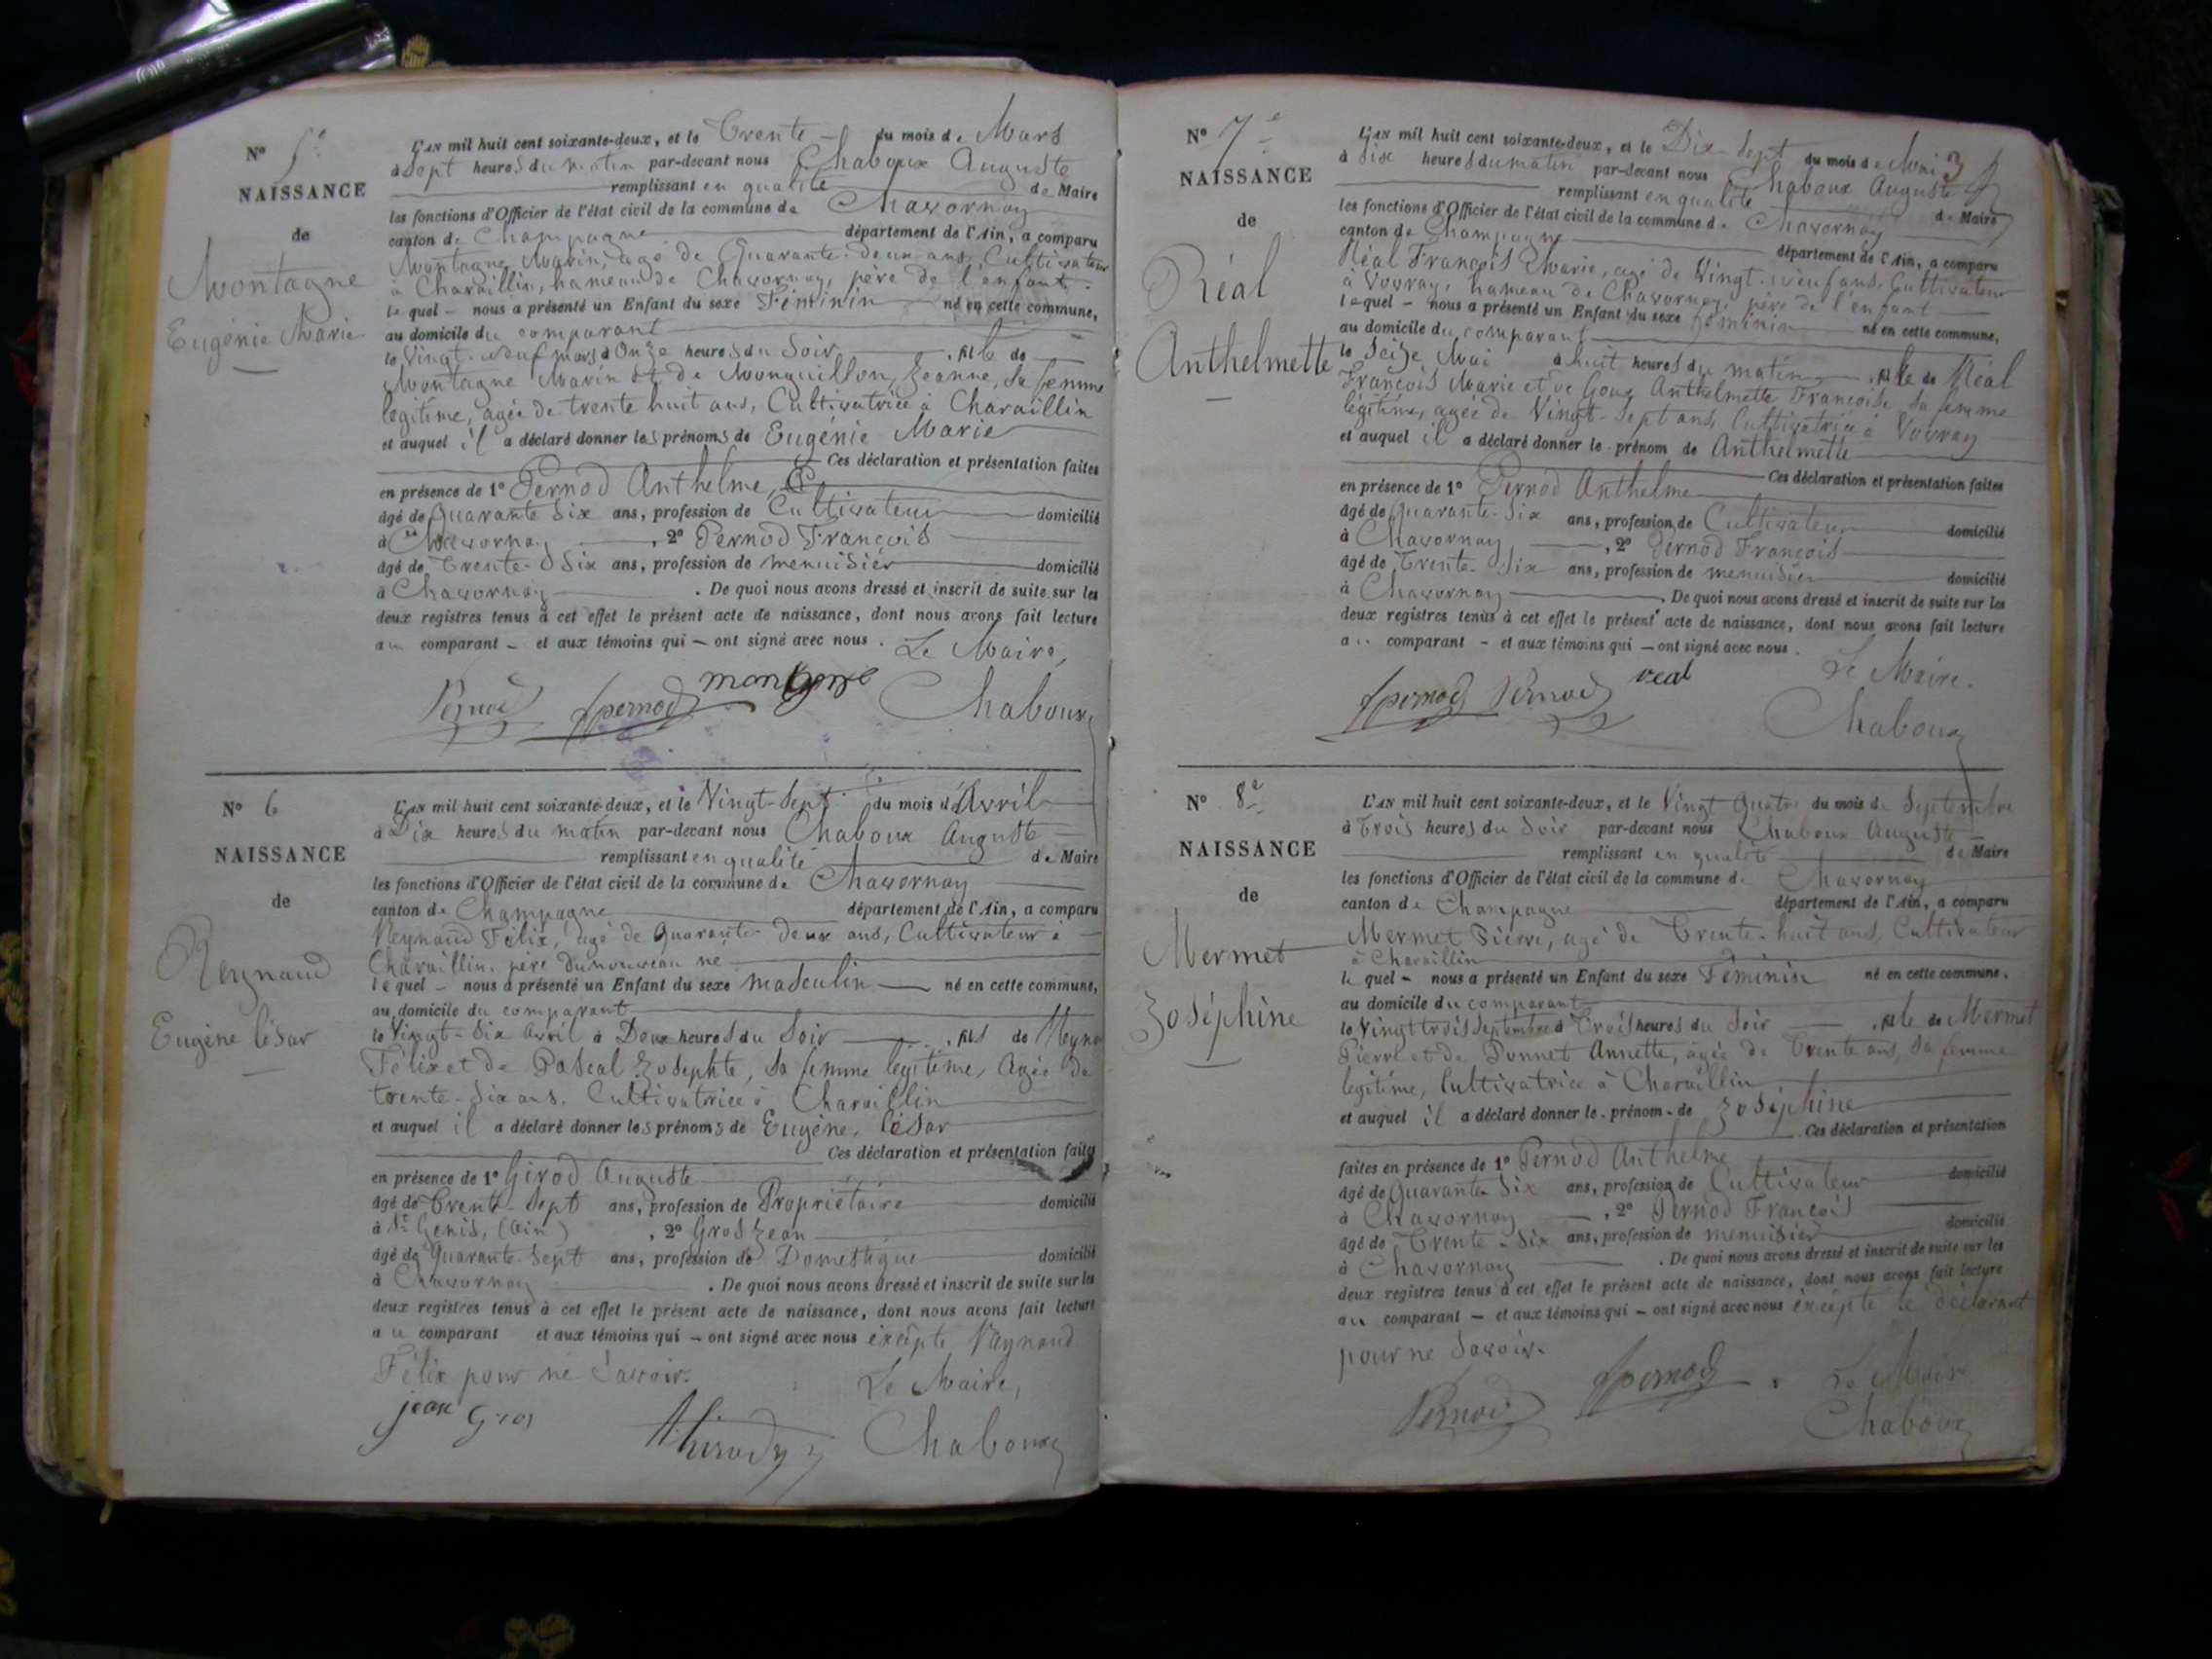 N° 5e
NAISSANCE
de
Montagne
Eugénie Marie
L'AN mil huit cent soixante-deux, et le Trente du mois de Mars
à Sept heures du matin par-devant nous Chaboux Auguste
remplissant en qualité de Maire
les fonctions d'Officier de l'état civil de la commune de Chavornay
canton de Champagne département de l'Ain, a comparu
Montagne Marin, agé de Quarante-deux ans, Cultivateur
à Charaillin, hameau de Chavornay, père de l'enfant.
lequel – nous a présenté un Enfant du sexe Féminin né en cette commune,
au domicile du comparant
le Vingt-neuf mars à Onze heures du Soir, fille de
Montagne Marin et de Monguillon, Jeanne, Sa femme
légitime, agée de trente huit ans, Cultivatrice à Charaillin
et auquel il a déclaré donner les prénoms de Eugénie Marie
Ces déclaration et présentation faites
en présence de 1° Pernod Anthelme
âgé de Quarante Six ans, profession de Cultivateur domicilié
à Chavornay, 2° Pernod François
âgé de Trente-Six ans, profession de menuisier domicilié
à Chavornay. De quoi nous avons dressé et inscrit de suite sur les
deux registres tenus à cet effet le présent acte de naissance, dont nous avons fait lecture
au comparant – et aux témoins qui – ont signé avec nous. Le Maire,
Pernod fpernod montagne Chaboux
N° 6
NAISSANCE
de
Reynaud
Eugène César
L'AN mil huit cent soixante-deux, et le Vingt-Sept du mois d'Avril
à Dix heures du matin par-devant nous Chaboux Auguste
remplissant en qualité de Maire
les fonctions d'Officier de l'état civil de la commune de Chavornay
canton de Champagne département de l'Ain, a comparu
Reynaud Félix, agé de Quarante-deux ans, Cultivateur à
Charaillin. père du nouveau né
lequel – nous a présenté un Enfant du sexe masculin né en cette commune,
au domicile du comparant
le Vingt-Six Avril à Deux heures du Soir, fils de Reyna
Félix et de Pascal Josephte, Sa femme légitime, Agée de
trente-Six ans. Cultivatrice à Charaillin
et auquel il a déclaré donner les prénoms de Eugène, César
Ces déclaration et présentation faites
en présence de 1° Girod Auguste
âgé de Trente-Sept ans, profession de Propriétaire domicilié
à St Genis, (Ain), 2° Gros Jean
âgé de Quarante-Sept ans, profession de Domestique domicilié
à Chavornay. De quoi nous avons dressé et inscrit de suite sur les
deux registres tenus à cet effet le présent acte de naissance, dont nous avons fait lecture
au comparant et aux témoins qui – ont signé avec nous excépte Raynaud
Félix pour ne Savoir.
Le Maire,
jean Gros Chaboux
N° 7e
NAISSANCE
de
Réal
Anthelmette
3
L'AN mil huit cent soixante-deux, et le Dix-Sept du mois de Mai
à Six heures du matin par-devant nous Chaboux Auguste
remplissant en qualité de Maire
les fonctions d'Officier de l'état civil de la commune de Chavornay
canton de Champagne département de l'Ain, a comparu
Réal François Marie, agé de Vingt-neuf ans, Cultivateur
à Vovray, hameau de Chavornay, père de l'enfant
lequel – nous a présenté un Enfant du sexe féminin né en cette commune,
au domicile du comparant
le Seize Mai à huit heures du matin, fille de Réal
François Marie et de Goux Anthelmette Françoise, Sa femme
légitime, agée de Vingt-Sept ans, Cultivatrice à Vovray
et auquel il a déclaré donner le prénom de Anthelmette
Ces déclaration et présentation faites
en présence de 1° Pernod Anthelme
âgé de Quarante-Six ans, profession de Cultivateur domicilié
à Chavornay, 2° Pernod François
âgé de Trente-Six ans, profession de menuisier domicilié
à Chavornay. De quoi nous avons dressé et inscrit de suite sur les
deux registres tenus à cet effet le présent acte de naissance, dont nous avons fait lecture
au comparant – et aux témoins qui – ont signé avec nous.
Le Maire.
fpernod Pernod real Chaboux
N° 8e
NAISSANCE
de
Mermet
Joséphine
L'AN mil huit cent soixante-deux, et le Vingt Quatre du mois de Septembre
à Trois heures du Soir par-devant nous Chaboux Auguste
remplissant en qualité de Maire
les fonctions d'Officier de l'état civil de la commune de Chavornay
canton de Champagne département de l'Ain, a comparu
Mermet Pierre, agé de Trente-huit ans, Cultivateur
à Charaillin
lequel – nous a présenté un Enfant du sexe Féminin né en cette commune,
au domicile du comparant
le Vingt trois Septembre à Trois heures du Soir, fille de Mermet
Pierre et de Ponnet Annette, agée de Trente ans, Sa femme
légitime, Cultivatrice à Charaillin,
et auquel il a déclaré donner le prénom de Joséphine
Ces déclaration et présentation
faites en présence de 1° Pernod Anthelme
âgé de Quarante Six ans, profession de Cultivateur domicilié
à Chavornay, 2° Pernod François
âgé de Trente-Six ans, profession de menuisier domicilié
à Chavornay. De quoi nous avons dressé et inscrit de suite sur les
deux registres tenus à cet effet le présent acte de naissance, dont nous avons fait lecture
au comparant – et aux témoins qui – ont signé avec nous excépte le déclarant
pour ne Savoir.
Pernod fpernod Le Maire
Chaboux